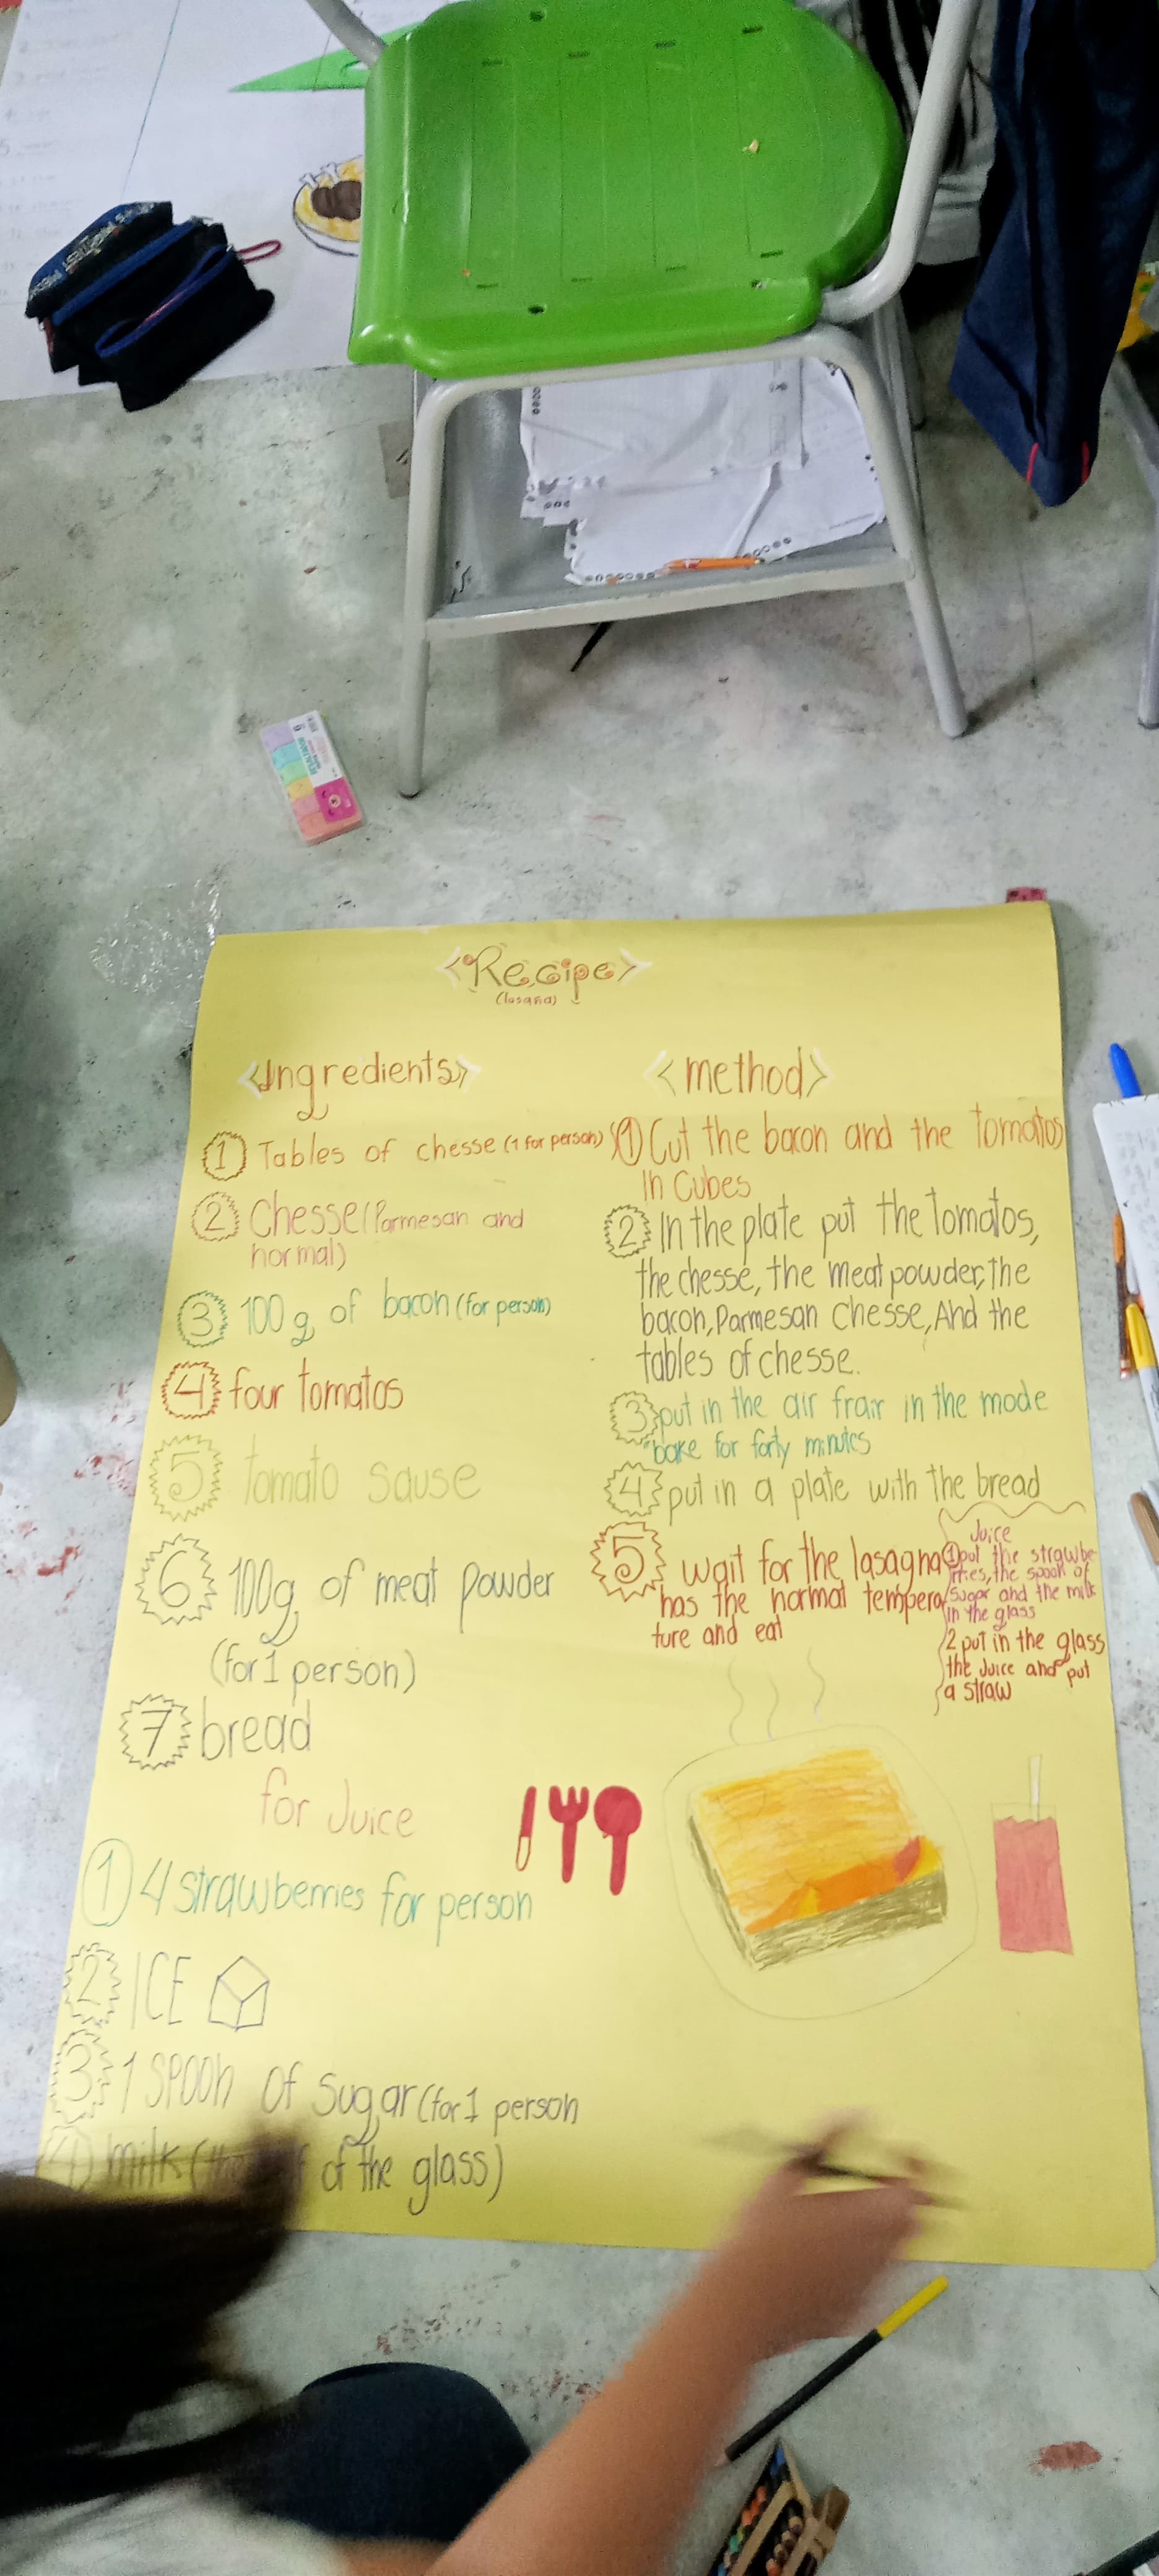 <Recipe>
(lasaña)
<Ingredients>
1 Tables of chesse (1 for person)
2 Chesse (Parmesan and
normal)
3 100 g of bacon (for person)
4 four tomatos
5 tomato sause
6 100g of meat powder
(for 1 person)
7 bread
for Juice
1 4 strawberries for person
2 ICE
3 1 spoon of sugar (for 1 person
4 milk ( of the glass)
<method>
1 Cut the bacon and the tomatos
In Cubes
2 In the plate put the tomatos,
the chesse, the meat powder, the
bacon, Parmesan chesse, And the
tables of chesse.
3 put in the air frair in the mode
bake for forty minutes
4 put in a plate with the bread
5 wait for the lasagna
has the normal tempera
ture and eat
Juice
1 put the strawbe
rries, the spoon of
sugar and the milk
in the glass
2 put in the glass
the Juice and put
a straw